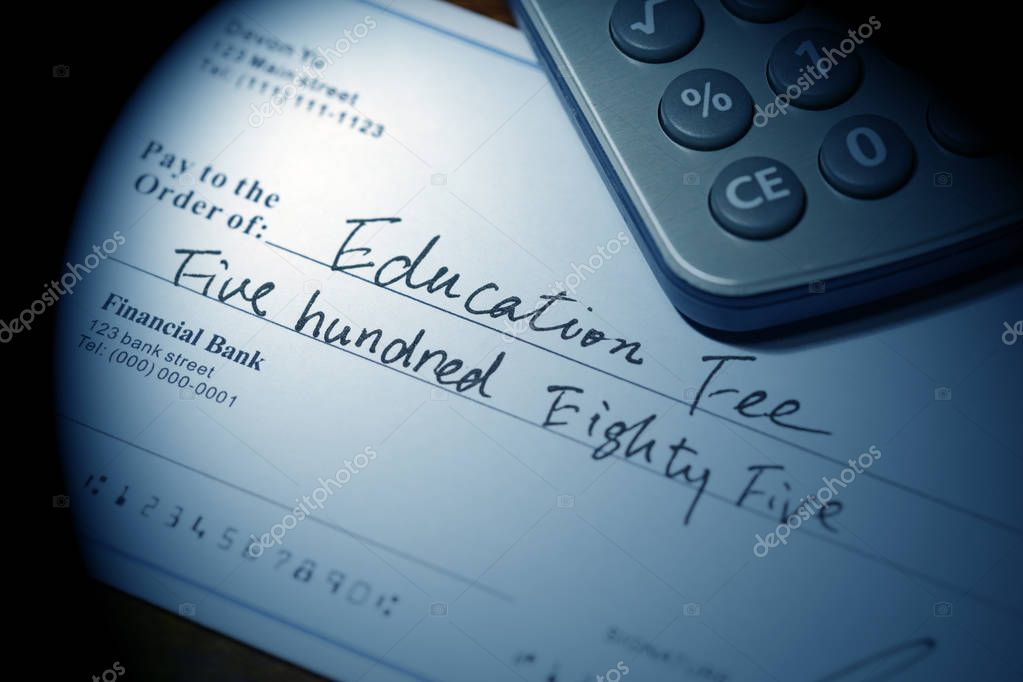 123 Main street
Tel: (111) 111-1123
Pay to the
Order of: Education Fee
Five hundred Eighty Five
Financial Bank
123 bank street
Tel: (000) 000-0001
⑆1234567890⑆
SIGNATURE
√
%
1
CE
0
depositphotos